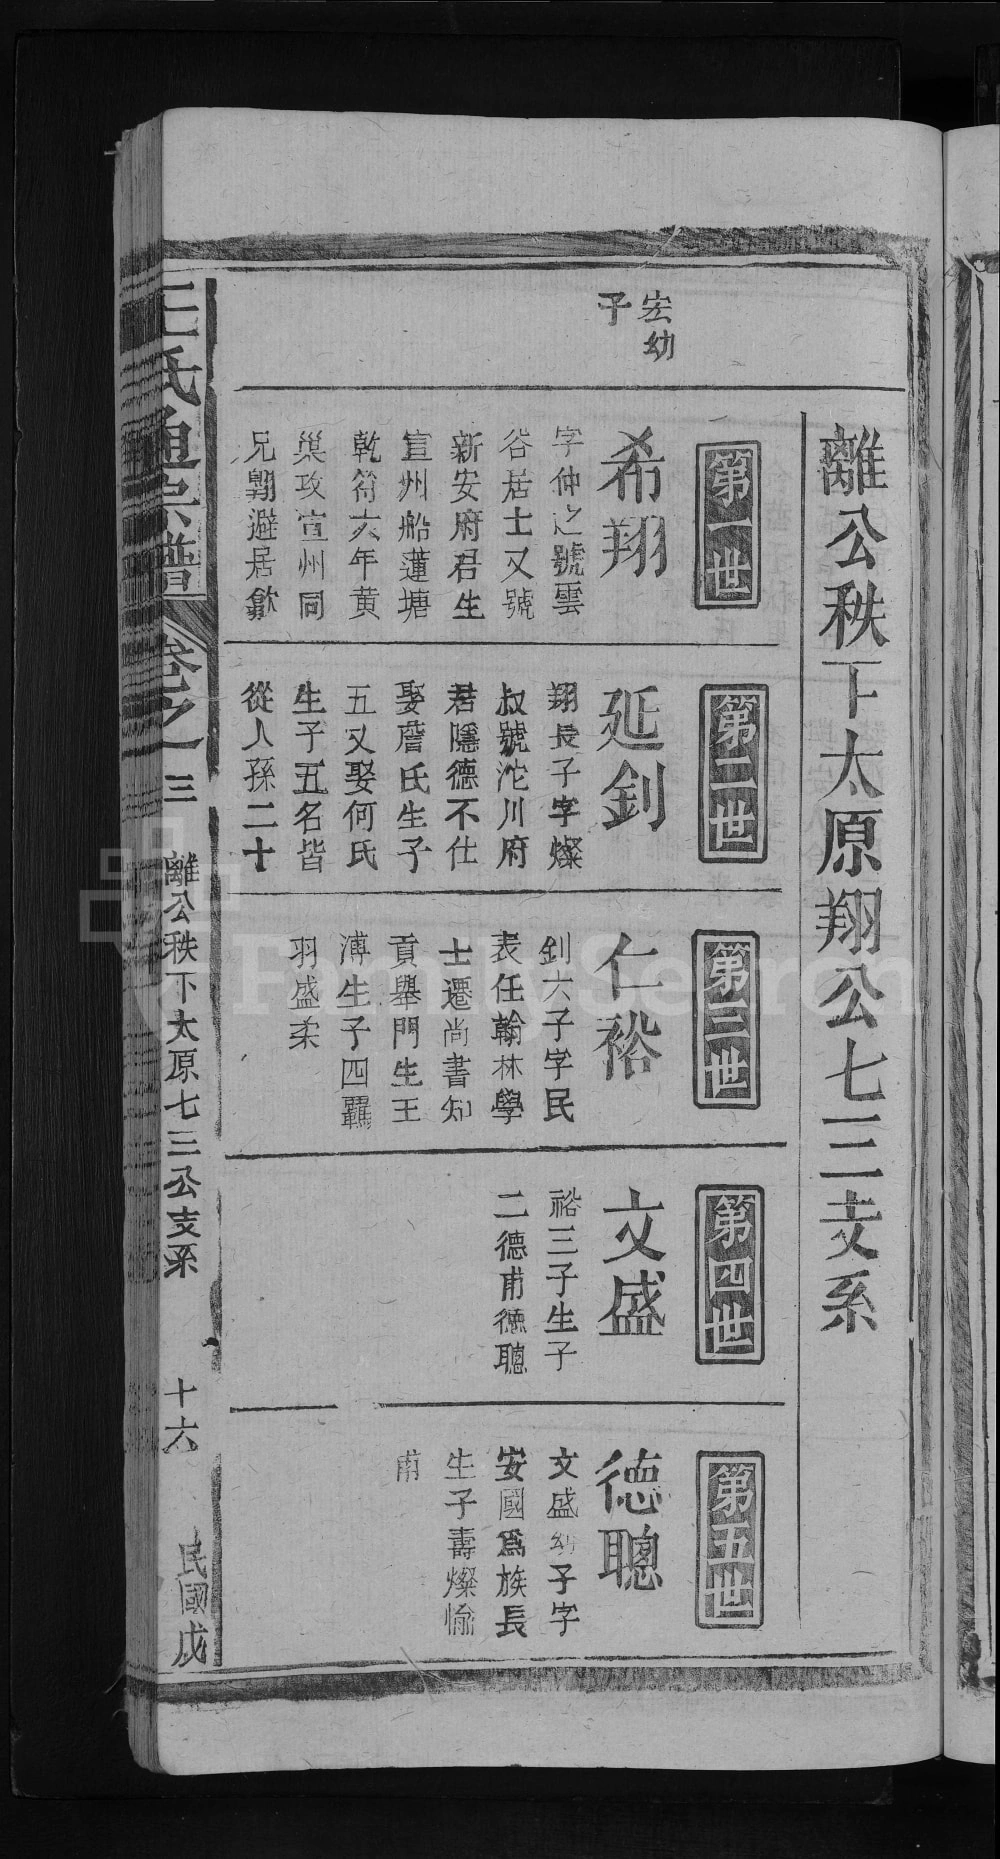 離公秩下太原翔公七三支系
宏幼
子
第一世
希翔
字仲之號雲
谷居士又號
新安府君生
宣州船蓮塘
乾符六年黄
巢攻宣州同
兄翺避居歙
第二世
延釗
翔長子字燦
叔號沱川府
君隱德不仕
娶詹氏生子
五又娶何氏
生子五名皆
從人孫二十
第三世
仁裕
釗六子字民
表任翰林學
士遷尚書知
貢舉門生王
溥生子四羈
羽盛柔
第四世
文盛
裕三子生子
二德甫德聰
第五世
德聰
文盛幼子字
安國爲族長
生子壽燦愉
甫
王氏通宗譜
卷之三
離公秩下太原七三公支系
十六
民國戊
FamilySearch